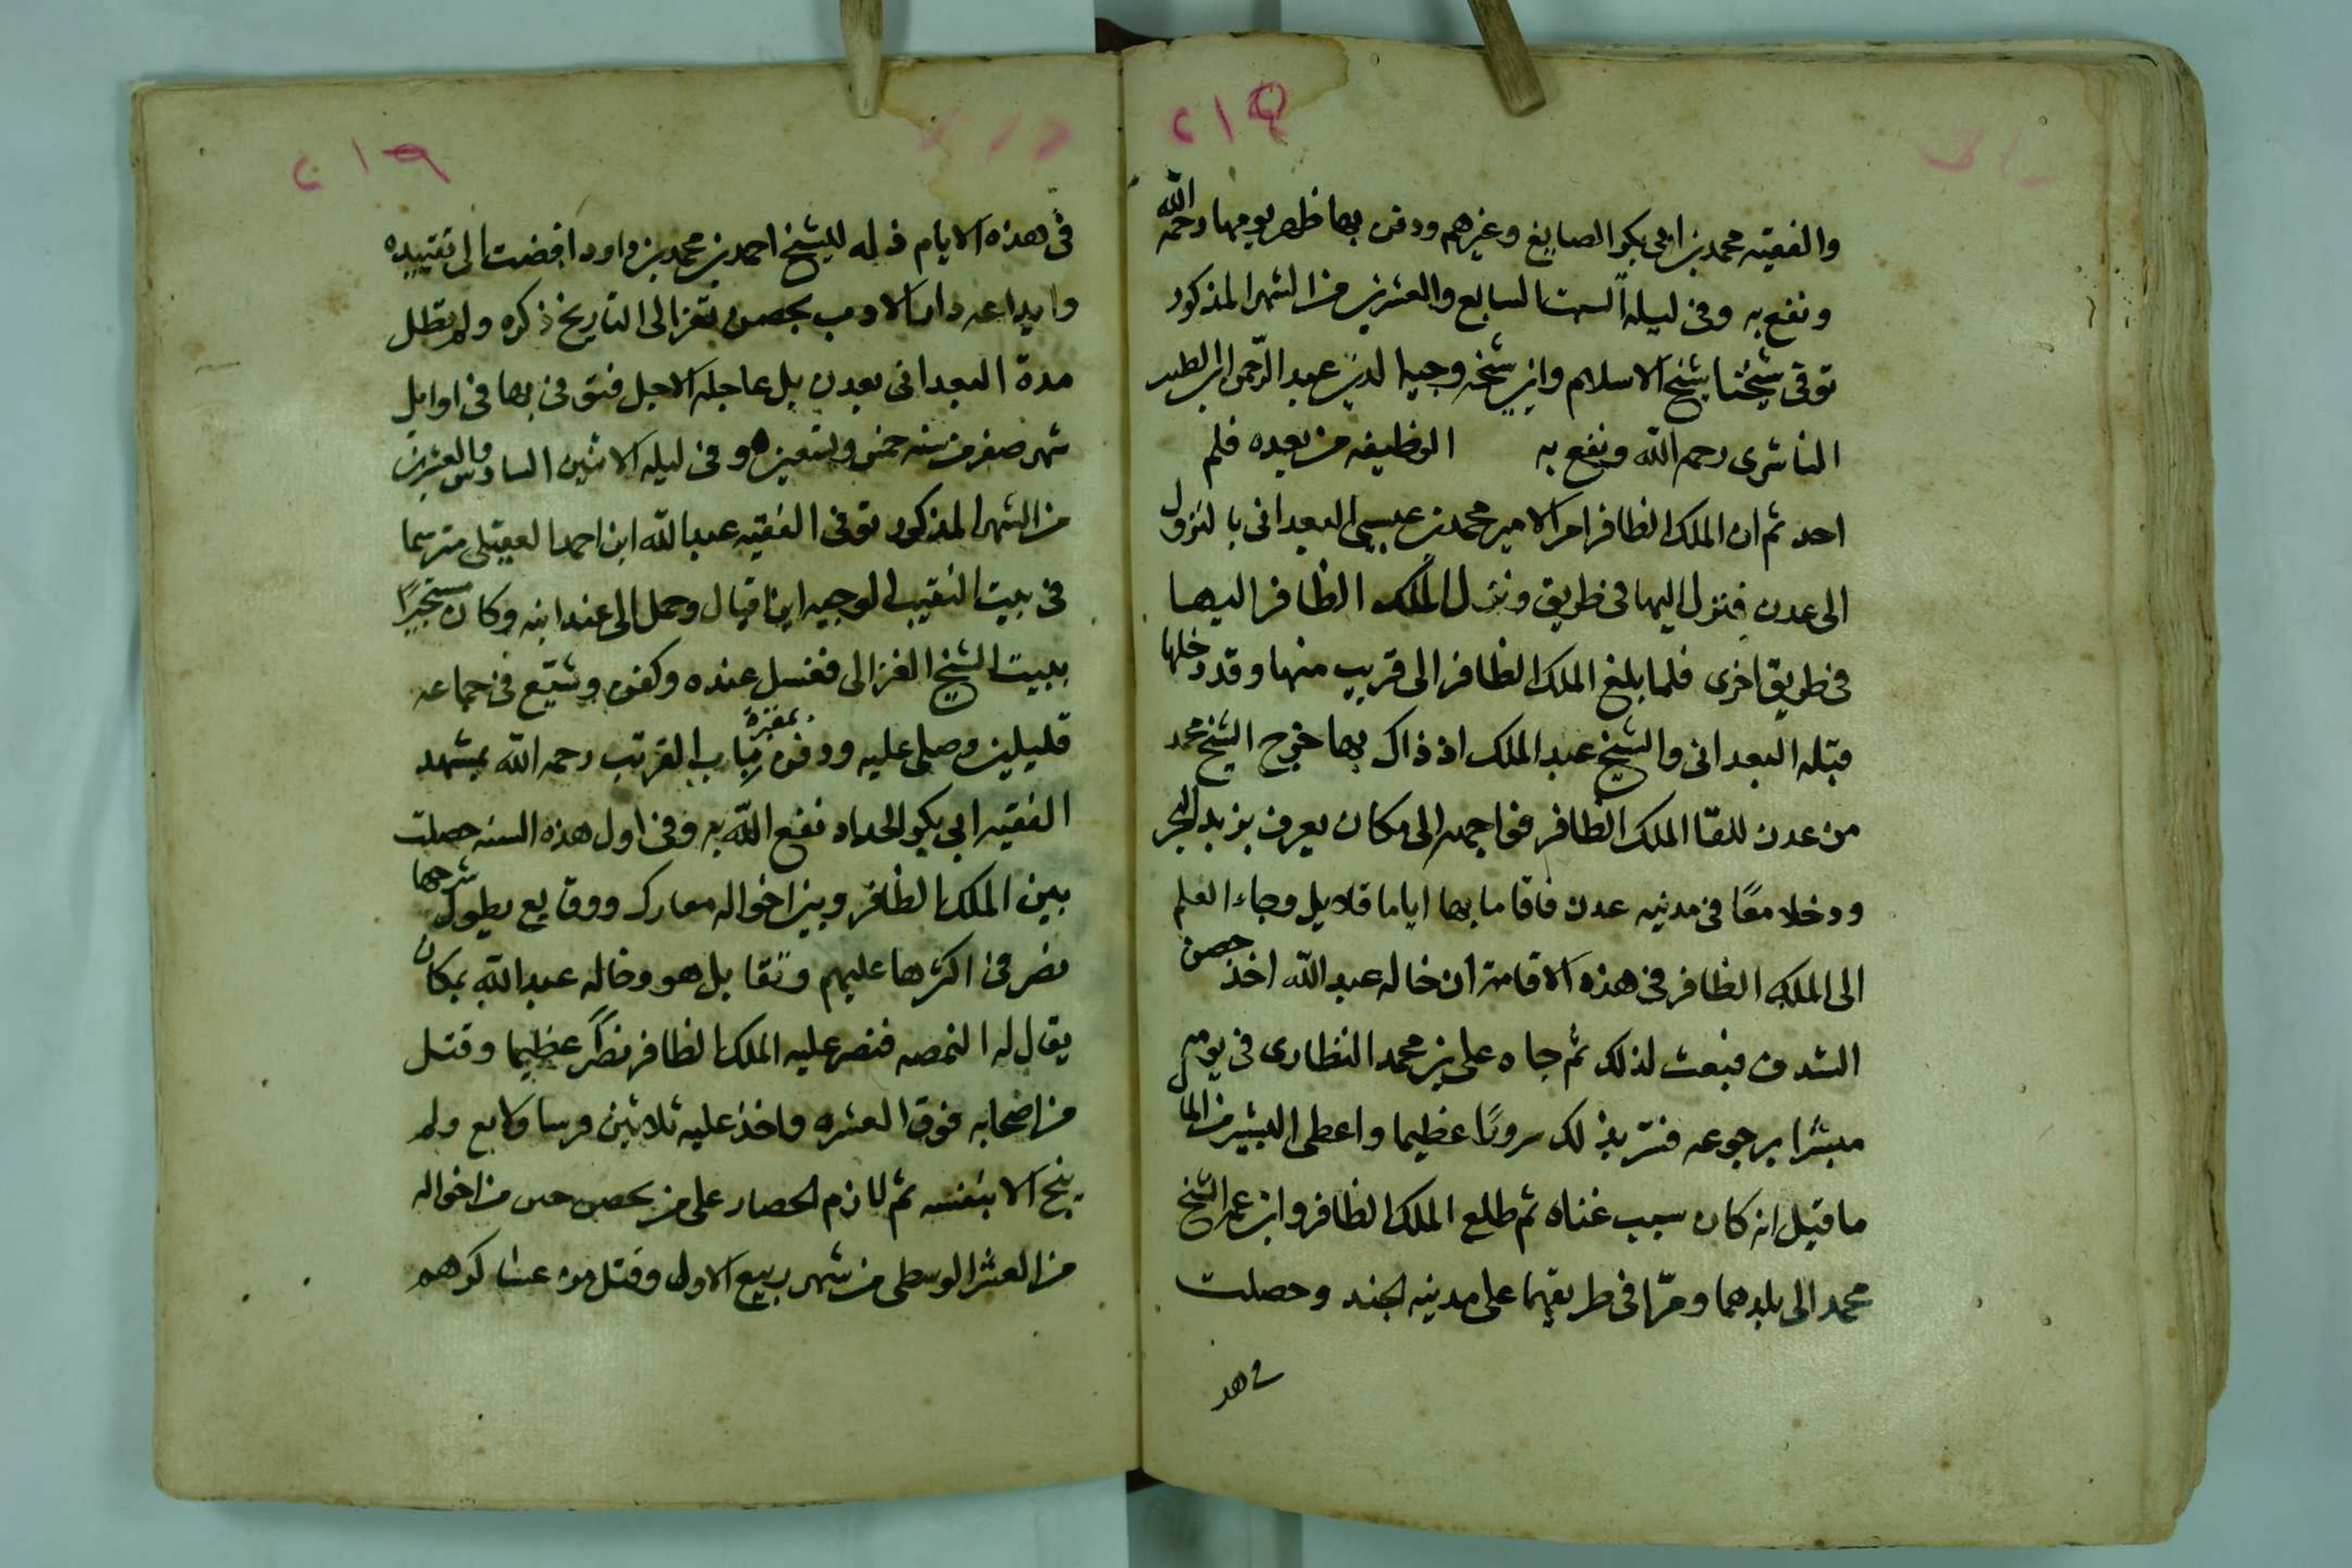 ٢١٤
والفقيه محمد بن ابى بكر الصايغ وغيرهم ودفن بها ظهر يومها رحمه الله
ونفع به وفى ليلة السبت السابع والعشرين من الشهر المذكور
توفى شيخنا شيخ الاسلام وابن شيخه وجيه الدين عبد الرحمن ابن الطيب
الناشرى رحمه الله ونفع به الوظيفه من بعده فلم
احد ثم ان الملك الظافر امر الامير محمد بن عيسى البعدانى بالنزول
الى عدن فنزل اليها فى طريق ونزل الملك الظافر اليها
فى طريق اخرى فلما بلغ الملك الظافر الى قريب منها وقد دخلها
قبله البعدانى والشيخ عبد الملك اذ ذاك بها خرج الشيخ محمد
من عدن للقا الملك الظافر فواجهه الى مكان يعرف
ودخلا معًا فى مدينه عدن فاقاما بها اياما قلايل وجاء العلم
الى الملك الظافر فى هذه الاقامة ان خاله عبد الله اخذ حصن
فبعث لذلك ثم جاه على بن محمد النظارى فى يومه
مبشرا برجوعه فسر بذلك سرورًا عظيما واعطى البشير من المال
ما قيل انه كان سبب غناه ثم طلع الملك الظافر وابن عمه الشيخ
محمد الى بلدهما ومرّا فى طريقهما على مدينه الجند وحصلت
فى هذ
٢١٩
فى هذه الايام للشيخ احمد بن محمد بن داود افضت الى تقييده
وايداعه دار الادب بحصن تعز الى التاريخ ذكره ولم تطل
مدة البعدانى بعدن بل عاجله الاجل فتوفى بها فى اوايل
شهر صفر من سنه خمس وتسعين وفى ليله الاثنين السادس والعشرين
من الشهر المذكور توفى الفقيه عبد الله ابن احمد العقيلى مترسما
فى بيت النقيب الوجيه ابن اقبال وحمل الى عند ابنه وكان مستجيرًا
ببيت الشيخ الغزالى فغسل عنده وكفن وشيّع فى جماعه
قليلين وصلى عليه ودفن بمقبرة باب القرتب رحمه الله بمشهد
الفقيه ابى بكر الحداد نفع الله به وفى اول هذه السنه حصلت
بين الملك الظافر وبين اخواله معارك ووقايع يطول شرحها
نصر فى اكثرها عليهم وتقابل هو وخاله عبد الله بمكان
يقال له فنصر عليه الملك الظافر نصرًا عظيما وقتل
من اصحابه فوق العشره واخذ عليه ثلاثين فرسا ولم
ينج الا بنفسه ثم لازم الحصار على من بحصن من اخواله
من العشر الوسطى من شهر ربيع الاول وقتل من عساكرهم